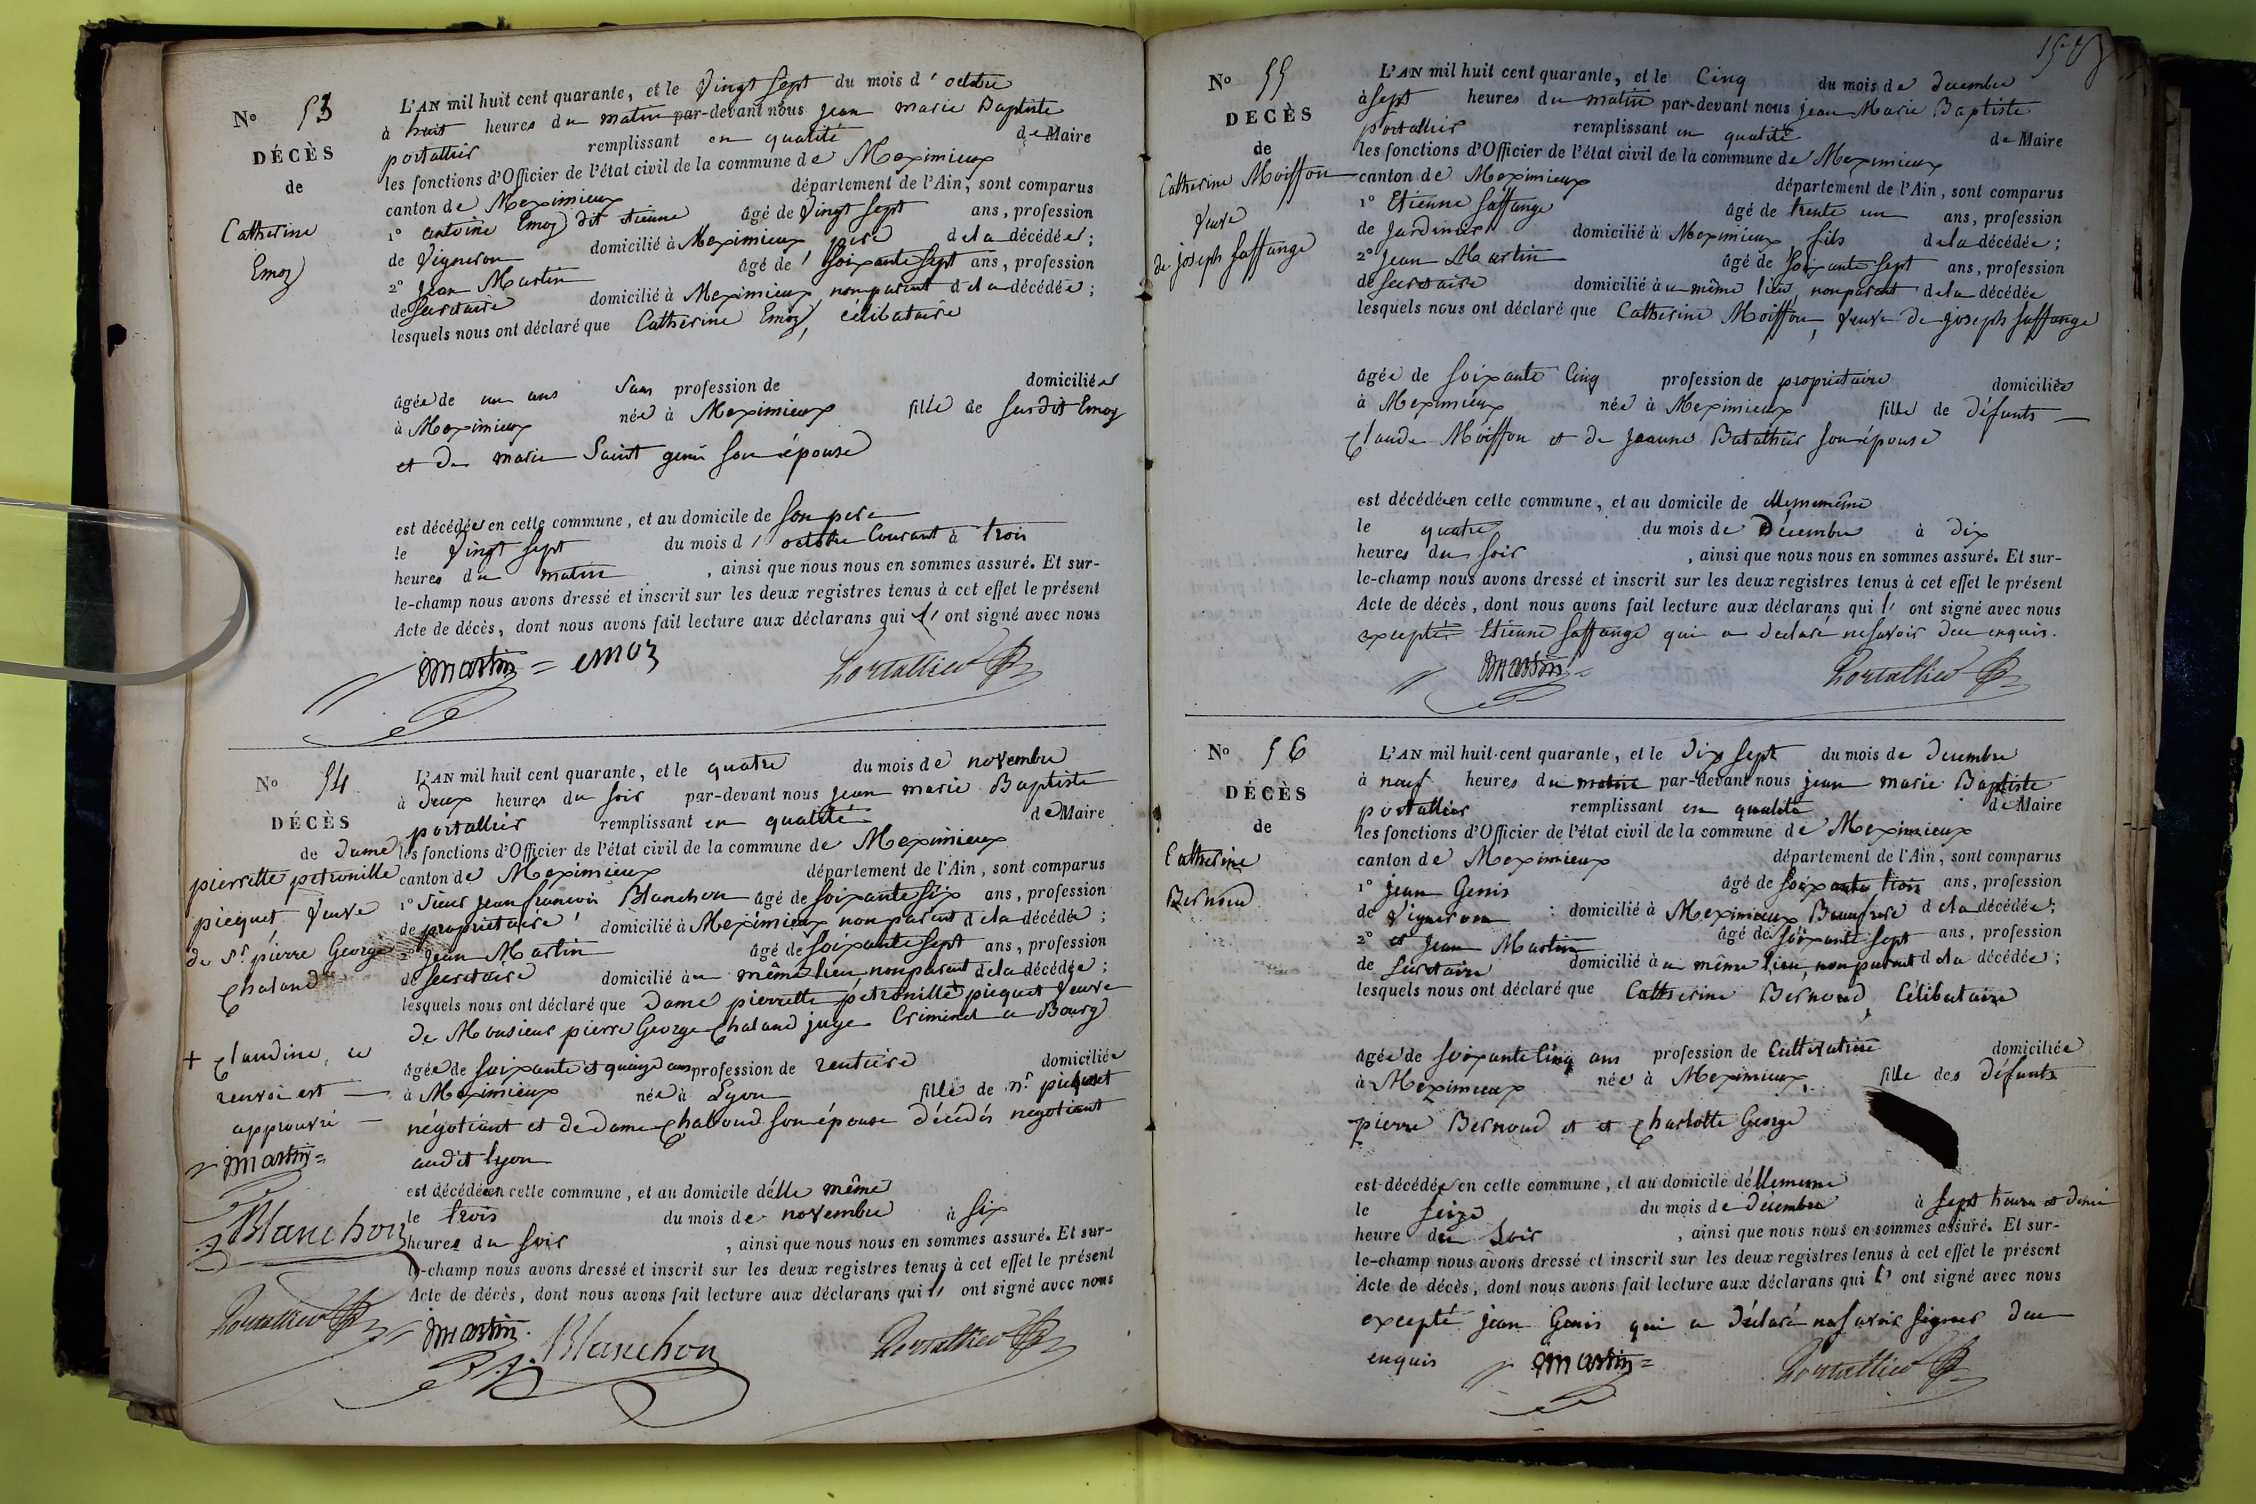 N° 53
DÉCÈS
de
Catherine
Emoz
L'AN mil huit cent quarante, et le Vingt Sept du mois d'octobre
à huit heures du matin par-devant nous jean marie Baptiste
portallier remplissant en qualité de Maire
les fonctions d'Officier de l'état civil de la commune de Meximieux
canton de Meximieux département de l'Ain, sont comparus
1° antoine Emoz dit étienne âgé de Vingt Sept ans, profession
de Vigneron domicilié à Meximieux père de la décédée;
2° jean Martin âgé de Soixante Sept ans, profession
de Secretaire domicilié à Meximieux non parent de la décédée;
lesquels nous ont déclaré que Catherine Emoz, célibataire
âgée de un ans Sans profession de domiciliée
à Meximieux née à Meximieux fille de Susdit Emoz
et de marie Saint genis Son épouse
est décédée en cette commune, et au domicile de Son pere
le Vingt Sept du mois d'octobre Courant à trois
heures du matin, ainsi que nous nous en sommes assuré. Et sur-
le-champ nous avons dressé et inscrit sur les deux registres tenus à cet effet le présent
Acte de décès, dont nous avons fait lecture aux déclarans qui l'ont signé avec nous
Martin = emoz Portallier
N° 54
DÉCÈS
de dame
pierrette petronille
picquet, Veuve
de Sr. pierre George
Chaland
+ Claudine, ce
renvoi est
approuvé
Martin =
Blanchon
Portallier
L'AN mil huit cent quarante, et le quatre du mois de novembre
à Deux heures du Soir par-devant nous jean marie Baptiste
portallier remplissant en qualité de Maire
les fonctions d'Officier de l'état civil de la commune de Meximieux
canton de Meximieux département de l'Ain, sont comparus
1° Sieur jean francois Blanchon âgé de Soixante Six ans, profession
de propriétaire domicilié à Meximieux non parent de la décédée;
2° jean Martin âgé de Soixante Sept ans, profession
de Secretaire domicilié à u même lieu non parent de la décédée;
lesquels nous ont déclaré que Dame pierrette pétronille + picquet Veuve
de Monsieur pierre George Chaland juge Criminel a Bourg
âgée de Soixante et quinze ans profession de rentiere domiciliée
à Meximieux née à Lyon fille de picquet
négotiant et de dame Chaland Son épouse décédés négotiant
audit Lyon
est décédée en cette commune, et au domicile d'elle même
le trois du mois de novembre à Six
heures du Soir, ainsi que nous nous en sommes assuré. Et sur-
le-champ nous avons dressé et inscrit sur les deux registres tenus à cet effet le présent
Acte de décès, dont nous avons fait lecture aux déclarans qui l'ont signé avec nous
Martin Blanchon Portallier
N° 55
DECÈS
de
Catherine Moiffon
Veuve
de joseph Saffange
L'AN mil huit cent quarante, et le Cinq du mois de decembre
à Sept heures du matin par-devant nous jean Marie Baptiste
portallier remplissant en qualité de Maire
les fonctions d'Officier de l'état civil de la commune de Meximieux
canton de Meximieux département de l'Ain, sont comparus
1° Etienne Saffange âgé de trente un ans, profession
de jardinier domicilié à Meximieux, fils de la décédée;
2° jean Martin âgé de Soixante Sept ans, profession
de Secretaire domicilié à u même lieu, non parent de la décédée
lesquels nous ont déclaré que Catherine Moiffon, Veuve de joseph Saffange
âgée de Soixante Cinq profession de propriétaire domiciliée
à Meximieux née à Meximieux fille de défunts
Claude Moiffon et de jeanne Batathier Son épouse
est décédée en cette commune, et au domicile de elle même
le quatre du mois de Décembre à dix
heures du Soir, ainsi que nous nous en sommes assuré. Et sur-
le-champ nous avons dressé et inscrit sur les deux registres tenus à cet effet le présent
Acte de décès, dont nous avons fait lecture aux déclarans qui l'ont signé avec nous
excepté Etienne Saffange qui a declaré ne Savoir de ce enquis.
Martin = Portallier
N° 56
DÉCÈS
de
Catherine
Bernoud
L'AN mil huit cent quarante, et le dix Sept du mois de decembre
à neuf heures du matin par-devant nous jean marie Baptiste
portallier remplissant en qualité de Maire
les fonctions d'Officier de l'état civil de la commune de Meximieux
canton de Meximieux département de l'Ain, sont comparus
1° jean Genis âgé de Soixante trois ans, profession
de Vigneron domicilié à Meximieux Beaufrere de la décédée;
2° et jean Martin âgé de Soixante Sept ans, profession
de Secretaire domicilié à u même lieu, non parent de la décédée;
lesquels nous ont déclaré que Catherine Bernoud, Célibataire
âgée de Soixante Cinq ans profession de Cultivatrice domiciliée
à Meximieux née à Meximieux, fille des défunts
pierre Bernoud et et Charlotte George
est décédée en cette commune, et au domicile d'elle meme
le Seize du mois de décembre à Sept heures et demi
heure du Soir, ainsi que nous nous en sommes assuré. Et sur-
le-champ nous avons dressé et inscrit sur les deux registres tenus à cet effet le présent
Acte de décès, dont nous avons fait lecture aux déclarans qui l'ont signé avec nous
excepté jean Genis qui a déclaré ne Savoir Signer de ce
enquis Martin = Portallier